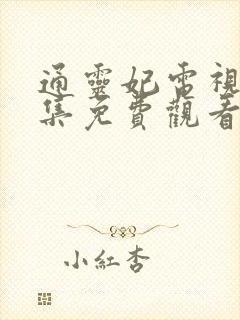 通靈妃電視
集免費觀看
小紅杏